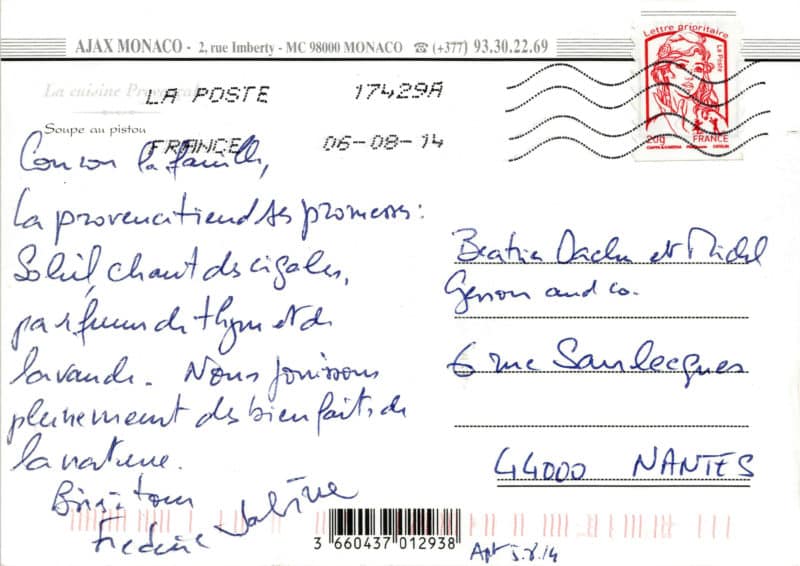 AJAX MONACO - 2, rue Imberty - MC 98000 MONACO ☎ (+377) 93.30.22.69
Lettre prioritaire
La Poste
20g FRANCE
La cuisine Provençale
LA POSTE 17429A
Soupe au pistou
FRANCE 06-08-14
Coucou la famille,
La provence tiend ses promesses :
Soleil, chant des cigales,
parfum de thym et de
lavande. Nous jouissons
pleinement des bienfaits de
la nature.
Bises à tous
Frédéric Sabine
Béatrice et Michel
and co.
6 rue Sanlecques
44000 NANTES
3 660437 012938
Apt 5.8.14